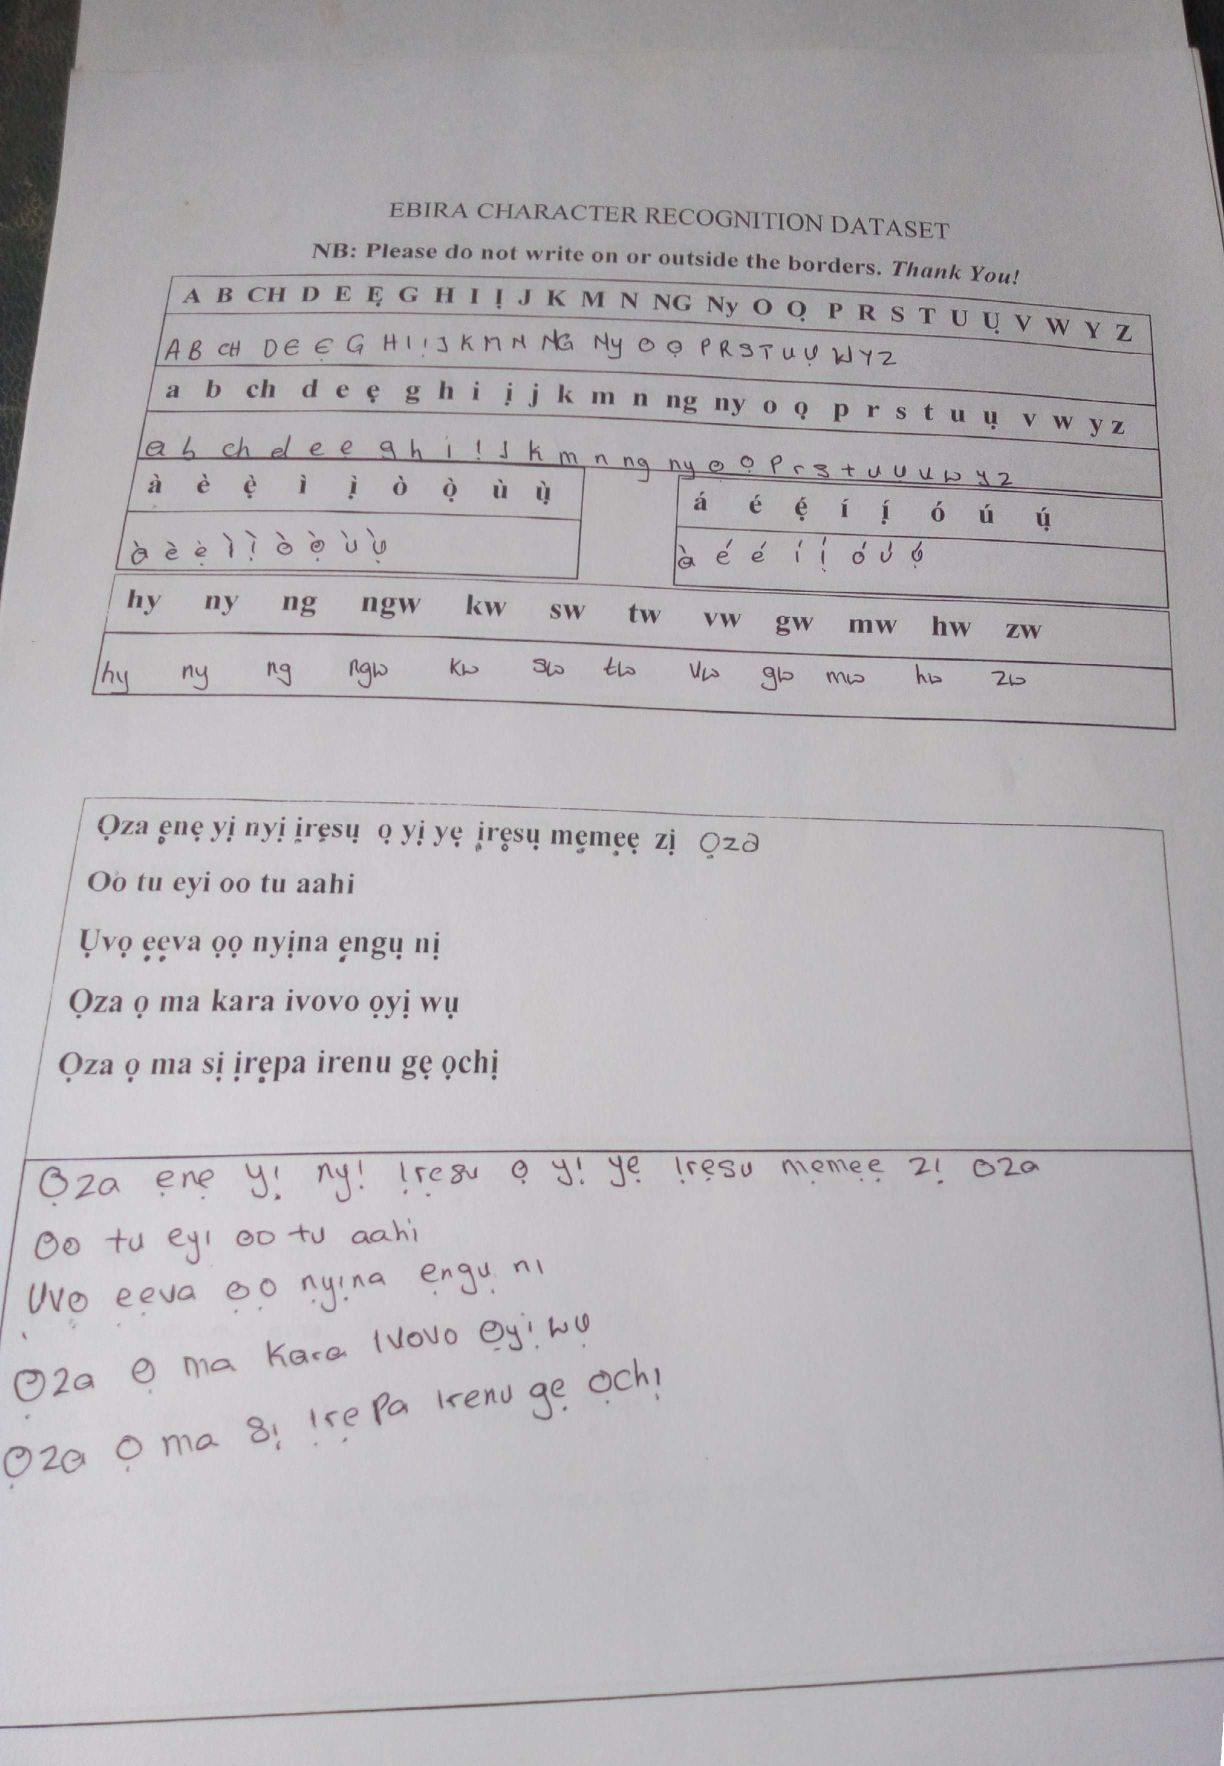 EBIRA CHARACTER RECOGNITION DATASET
NB: Please do not write on or outside the borders. Thank You!
A B CH D E Ẹ G H I Ị J K M N NG Ny O Ọ P R S T U Ụ V W Y Z
A B CH D E Ẹ G H I Ị J K M N NG Ny O Ọ P R S T U Ụ W Y Z
a b ch d e ẹ g h i ị j k m n ng ny o ọ p r s t u ụ v w y z
a b ch d e e g h i ị J k m n ng ny o ọ P r s t u u v w y z
à è ẹ̀ ì ị̀ ò ọ̀ ù ụ̀
á é ẹ́ í ị́ ó ú ụ́
à è ẹ̀ ì ị̀ ò ọ̀ ù ụ̀
à é é í ị́ ó ú ọ́
hy ny ng ngw kw sw tw vw gw mw hw zw
hy ny ng ngw kw sw tw vw gw mw hw zw
Ọza ẹnẹ yị nyị ịrẹsụ ọ yị yẹ ịrẹsụ mẹmẹẹ zị Ọza
Oo tu eyi oo tu aahi
Ụvọ ẹẹva ọọ nyịna ẹngụ nị
Ọza ọ ma kara ivovo ọyị wụ
Ọza ọ ma sị ịrẹpa irenu gẹ ọchị
Ọza ẹnẹ yị nyị ịrẹsu ọ yị yẹ ịrẹsu mẹmẹẹ zị oza
Oo tu eyi oo tu aahi
Ụvọ ẹẹva ọọ nyịna ẹngụ ni
Ọza ọ ma kara ivovo ọyị wụ
Ọza ọ ma sị ịrẹpa irenu gẹ ọchị